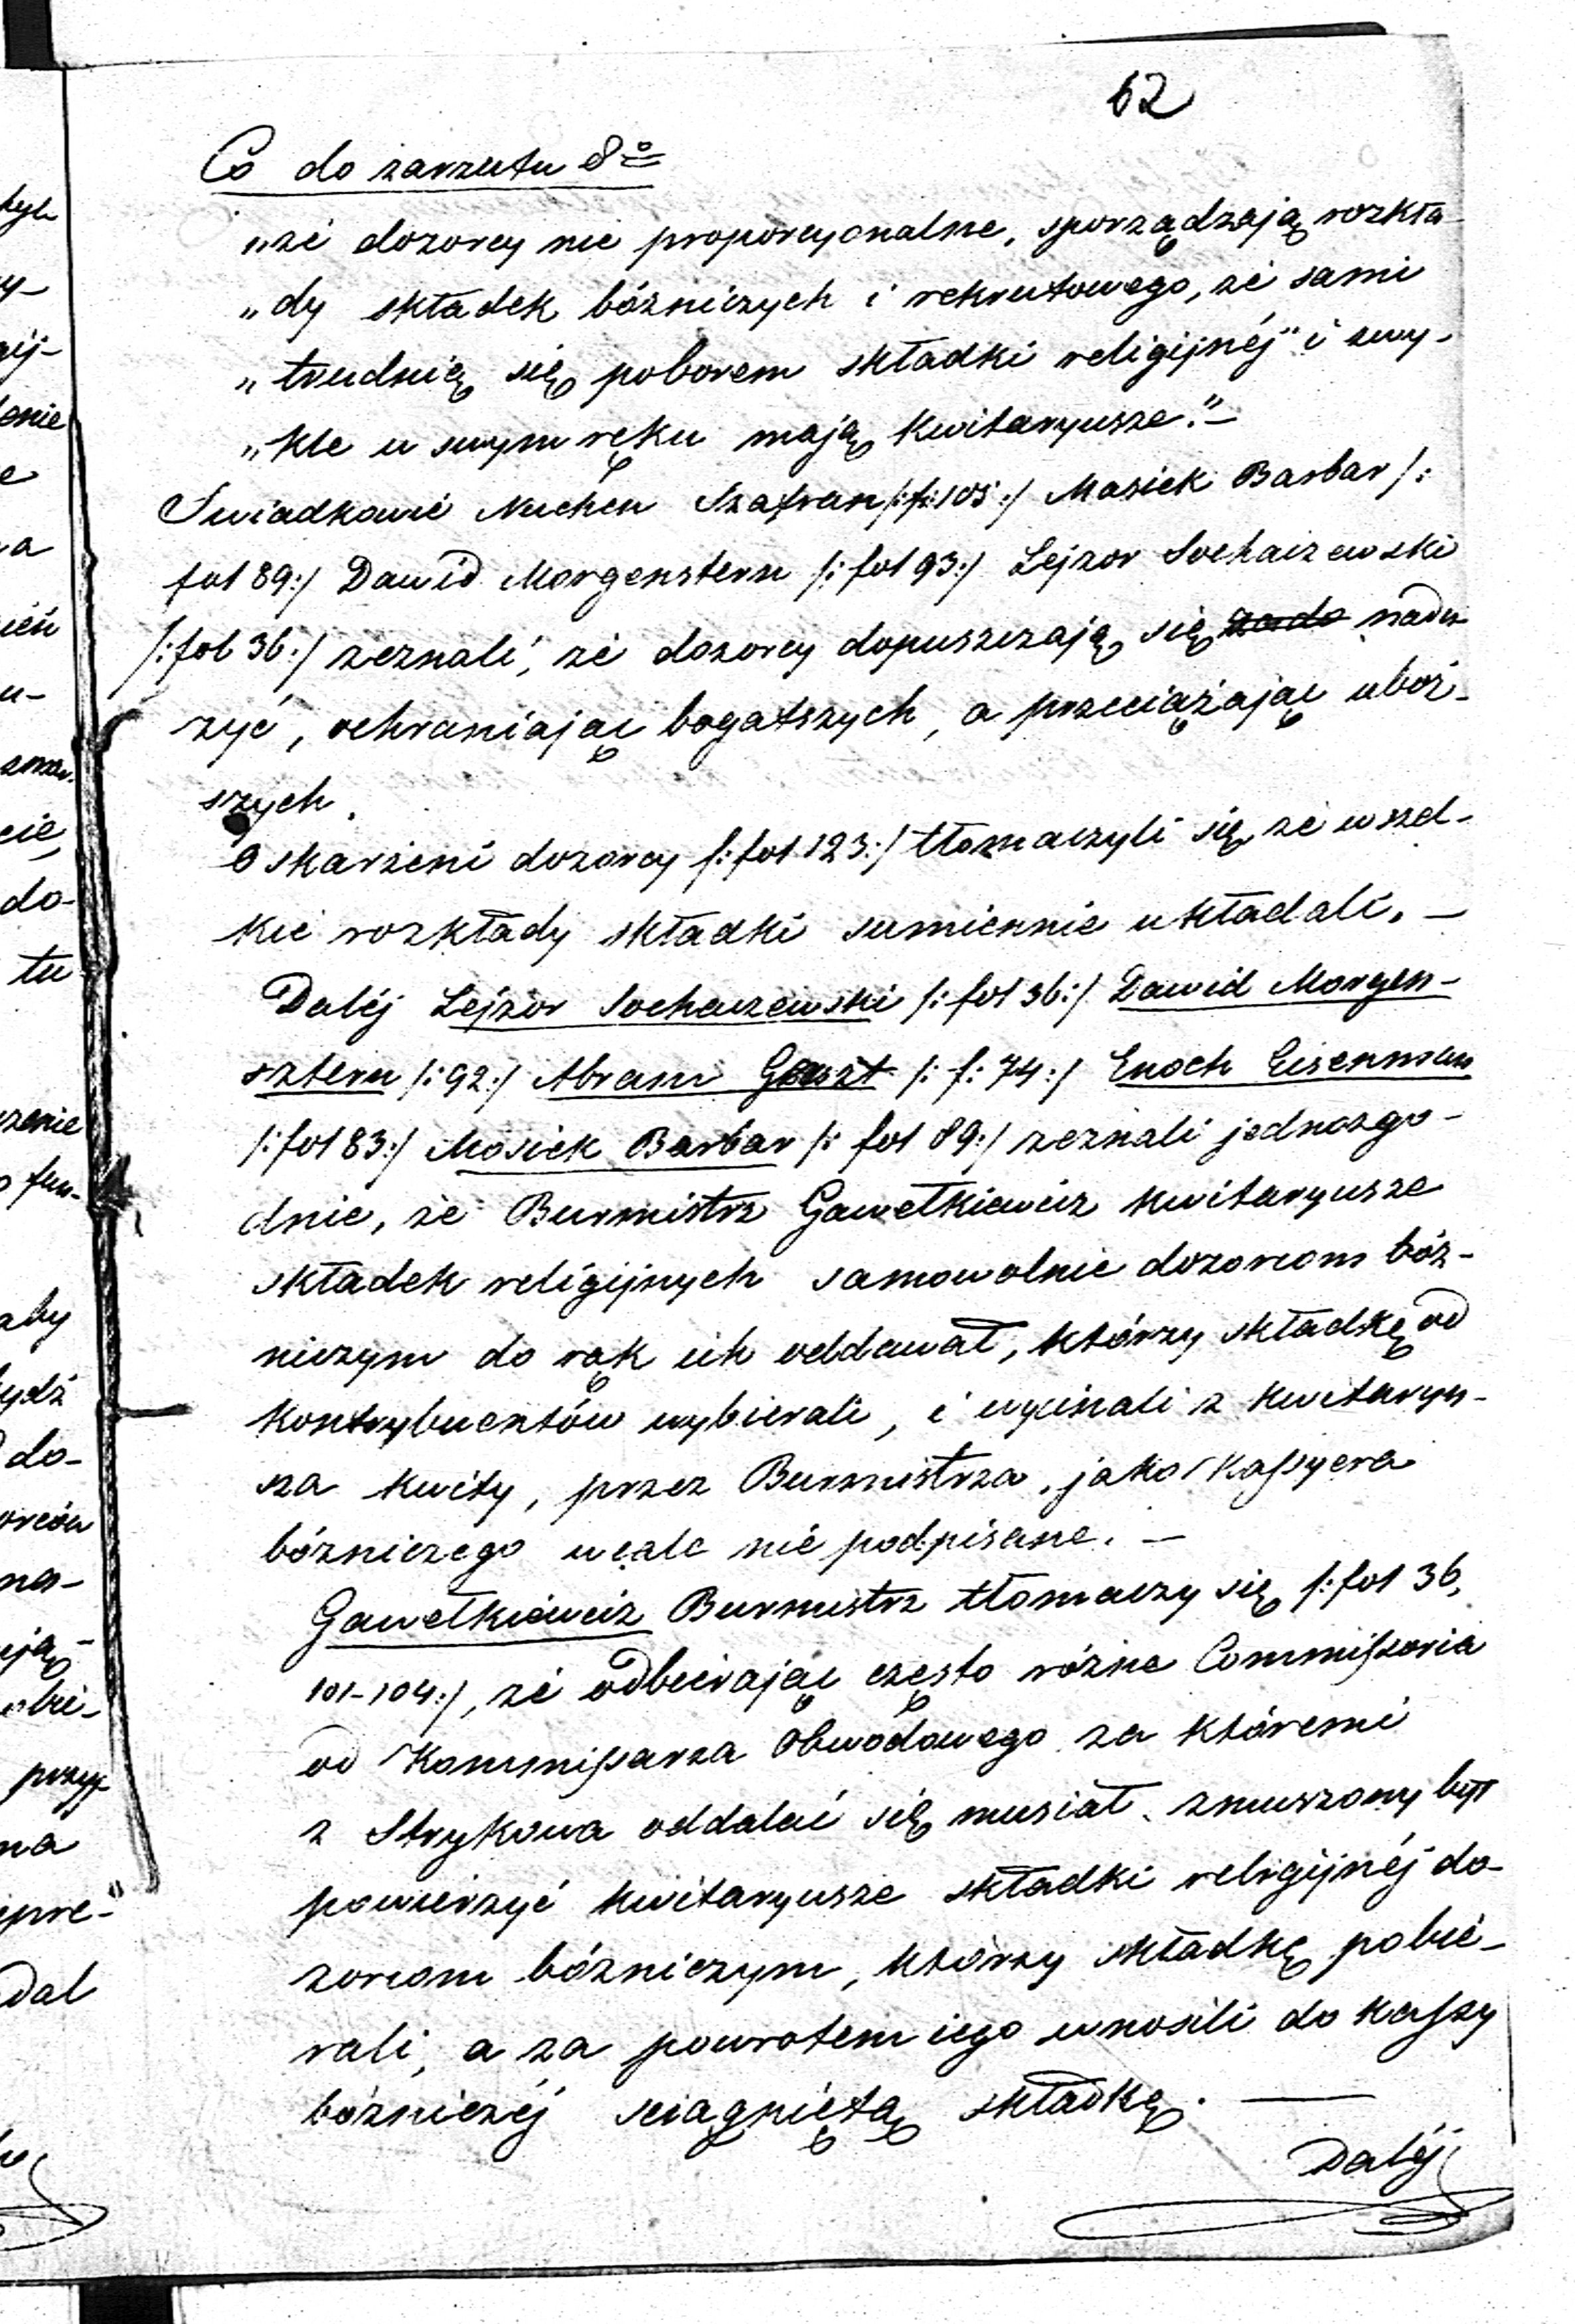 62
Co do zarzutu 8º
„że dozorcy nie proporcyonalne, sporządzają rozkła-
„dy składek bóżniczych i rekrutowego, że sami
„trudnią się poborem składki religijnéj" i zwy-
„kle w swym ręku mają kwitaryusze."—
Swiadkowie Nuchen Szafran /:f:105:/ Mosiek Barbar /:
fol 89:/ Dawid Morgenstern /:fol 93:/ Lejzor Sochaczewski
/:fol 36:/ zeznali, że dozorcy dopuszczają się nadu-
żyć, ochraniając bogatszych, a przeciążając uboż-
szych.
Oskarżeni dozorcy /:fol 123:/ tłomaczyli się, że wszel-
kie rozkłady składki sumiennie układali. —
Daléj Lejzor Sochaczewski /:fol 36:/ Dawid Morgen-
sztern /:92:/ Abram /:f:74:/ Enoch Eisenman
/:fol 83:/ Mosiek Barbar /: fol 89:/ zeznali jednozgo-
dnie, że Burmistrz Gawełkiewicz kwitaryusze
składek religijnych samowolnie dozorcom bóż-
niczym do rąk ich oddawał, którzy składkę od
kontrybuentów wybierali, i wycinali z kwitaryu-
sza kwity, przez Burmistrza, jako Kassyera
bóżniczego wcale nie podpisane. —
Gawełkiewicz Burmistrz tłomaczy się /:fol 36,
101-104:/, że odbierając często różne Commissoria
od Kommissarza Obwodowego za któremi
z Strykowa oddalać się musiał, zmuszony był
powierzyć kwitaryusze składki religijnéj do-
zorcom bóżniczym, którzy składkę pobie-
rali, a za powrotem iego wnosili do kassy
bóżniczéj sciągniętą składkę. —
Daléj